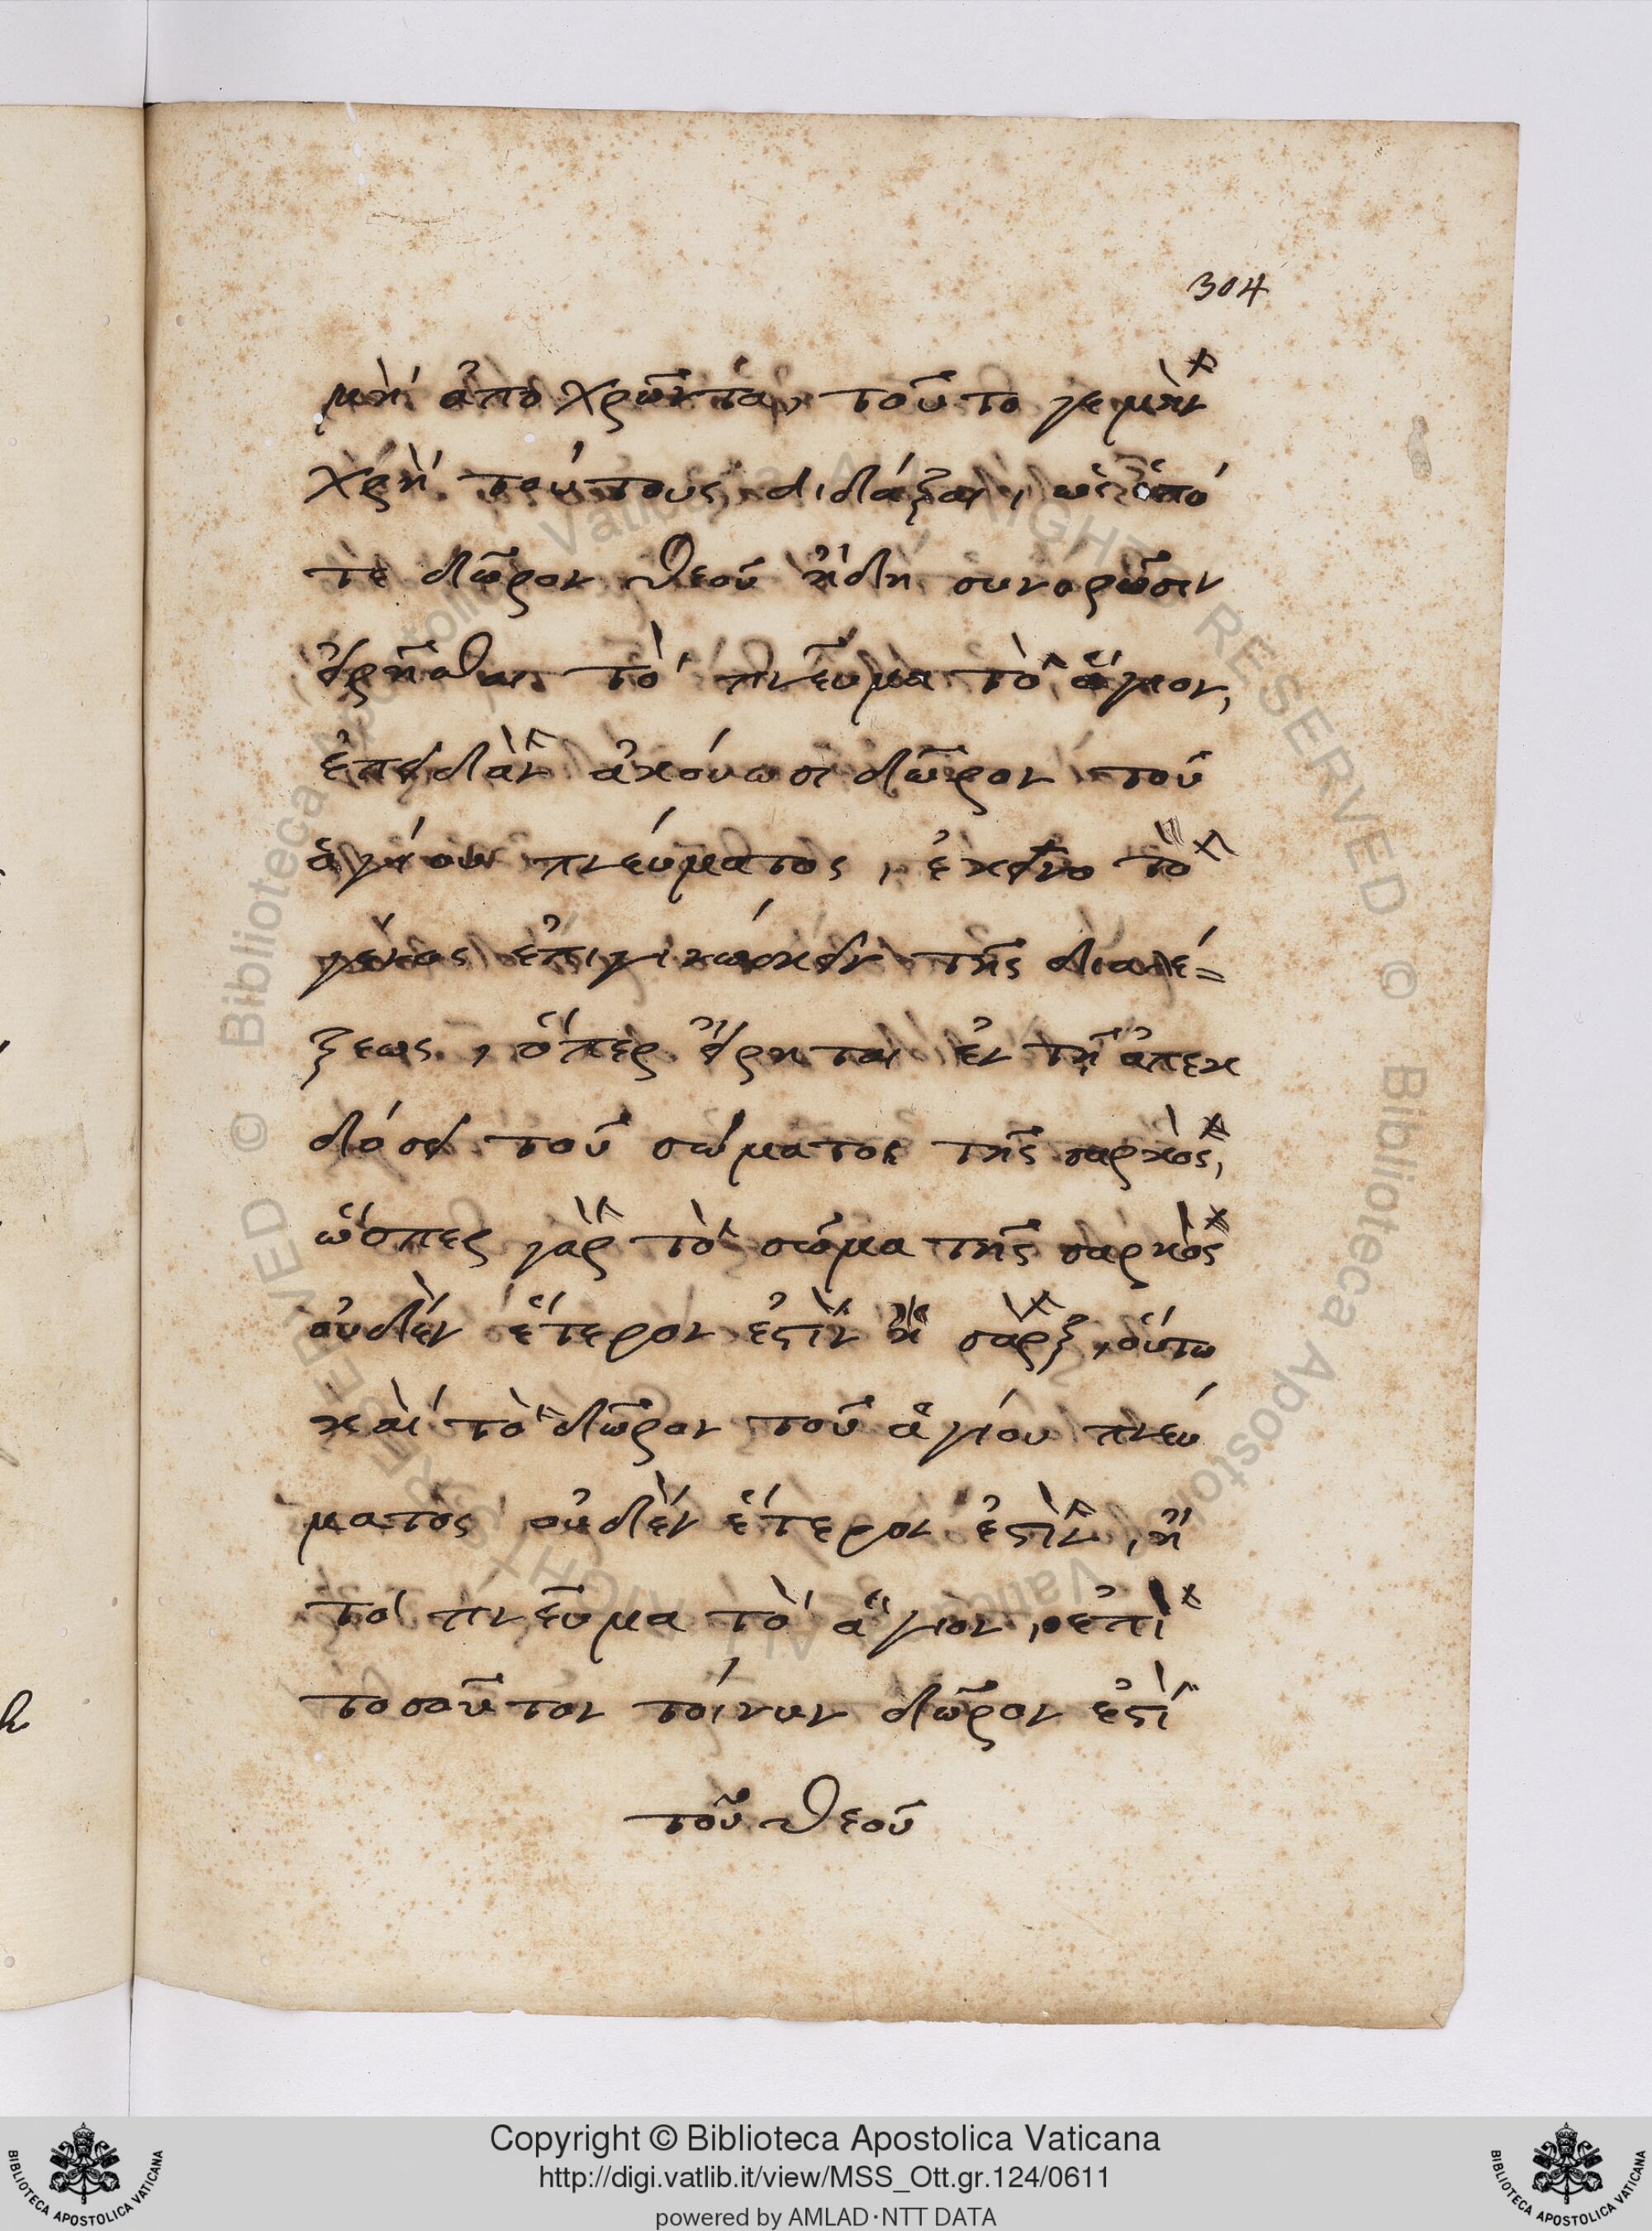 304
μὴ ἀποχρῶντα, τοῦτο γεμὴν
χρὴ τούτους διδάξαι, ὡς ὁπό
τε δῶρον θεοῦ ἤδη συνορῶσιν
εἰρῆσθαι τὸ πνεῦμα τὸ ἅγιον,
ἐπειδὰν ἀκούωσι δῶρον τοῦ
ἁγίου πνεύματος, ἐκεῖνο τὸ
γένος ἐπιγινώσκειν τῆς διαλέ=
ξεως, ὅπερ εἴρηται ἐν τῇ ἀπεκ
δύσει τοῦ σώματος τῆς σαρκὸς,
ὥσπερ γὰρ τὸ σῶμα τῆς σαρκὸς
οὐδὲν ἕτερον ἐστὶν ἢ σὰρξ, οὕτω
καὶ τὸ δῶρον τοῦ ἁγίου πνεύ
ματος οὐδὲν ἕτερον ἐστὶν, ἢ
τὸ πνεῦμα τὸ ἅγιον, ἐπὶ
τοσοῦτον τοίνυν δῶρον ἐστὶ
τοῦ θεοῦ
Copyright © Biblioteca Apostolica Vaticana
http://digi.vatlib.it/view/MSS_Ott.gr.124/0611
powered by AMLAD·NTT DATA